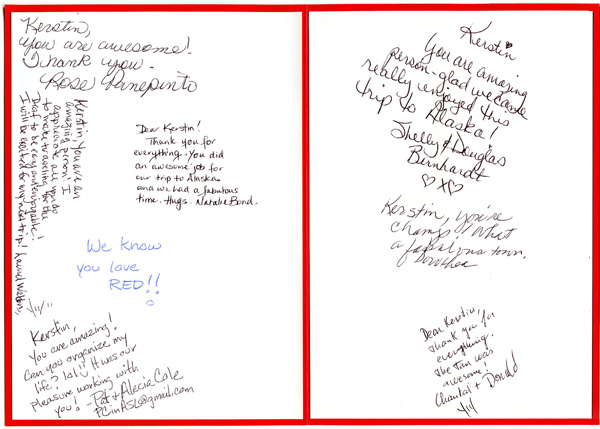 Kerstin,
you are awesome!
Thank you.
Rose Panepinto
Kerstin, you are an
amazing person! I
appreciate all you do
to make traveling for the
Deaf to be easy and enjoyable!
I will be excited for my next trip!
Dear Kerstin!
Thank you for
everything. You did
an awesome job for
our trip to Alaska
and we had a fabulous
time. Hugs. Natalie Bond.
We know
you love
RED!!
Kerstin,
You are amazing!
Can you organize my
life? lol!! It was our
pleasure working with
you! - Pat & Alecia Cale
PCinASL@gmail.com
Kerstin
You are amazing
person - glad we came
really enjoyed this
trip to Alaska!
Shelly & Douglas
Bernhardt
♡X♡
Kerstin, you're
champ! What
a fabulous town.
Dorothea
Dear Kerstin,
Thank you for
everything.
The was
awesome!
Chantal + Donald